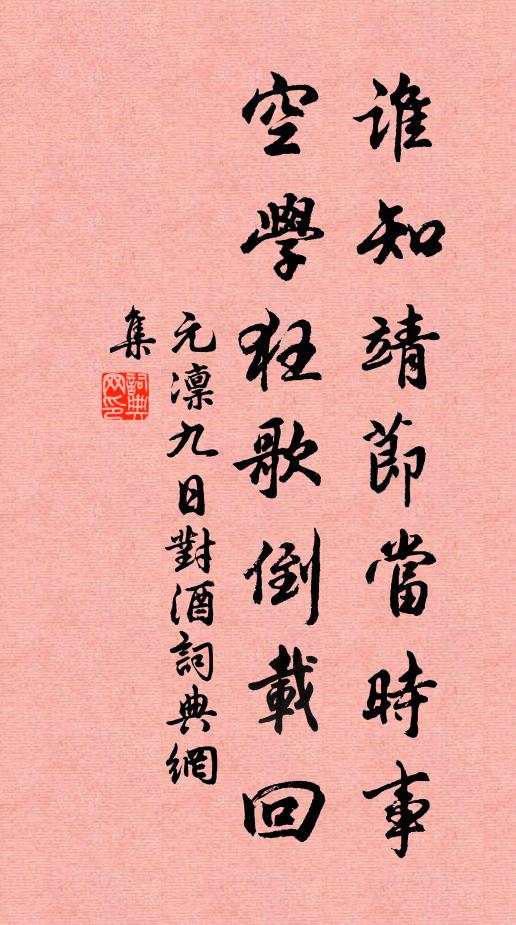 誰知靖節當時事
空學狂歌倒載回
元凛九日對酒詞典網
集
詞典
網印